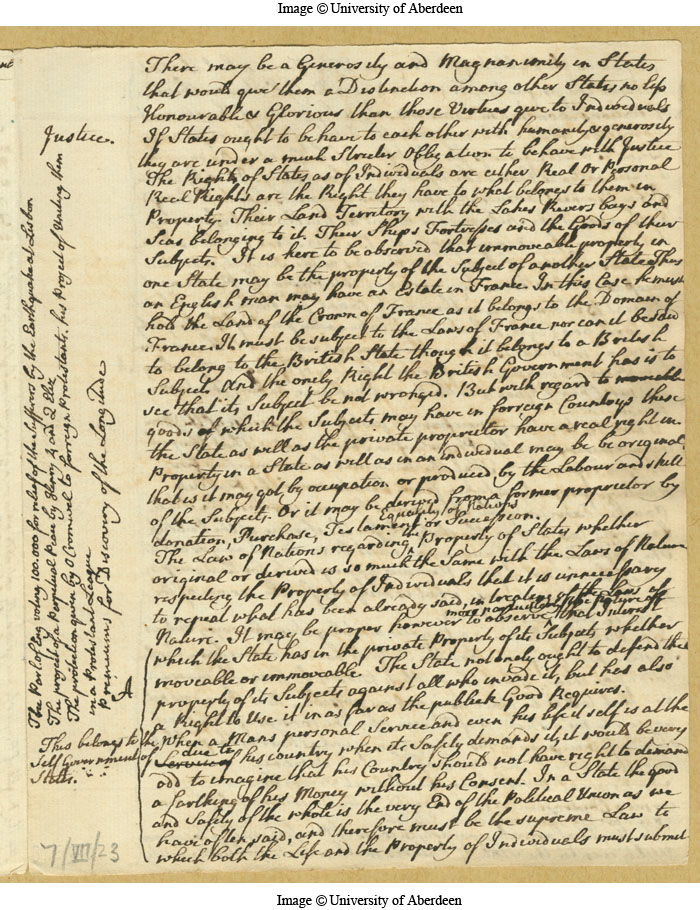 Image © University of Aberdeen
There may be a Generosity and Magnanimity in States
that would give them a Distinction among other States no less
Honourable & Glorious than those Virtues give to Individuals
If States ought to behave to each other with humanity & generosity
they are under a much Stricter Obligation to behave with Justice
The Rights of States as of Individuals are either Real Or Personal
Real Rights are the Right they have to what belongs to them in
Property. Their Land Territory with the Lakes Rivers bays and
Seas belonging to it, Their Ships Fortresses and the Goods of their
Subjects. It is here to be observed that unmoveable property in
one State may be the property of the Subject of another State Thus
an English man may have an Estate in France. In this Case he must
hold the Land of the Crown of France as it belongs to the Domain of
France. It must be subject to the Laws of France nor can it be said
to belong to the British State though it belongs to a British
Subject And the onely Right the British Government has is to
see that its Subject be not wronged. But with regard to moveable
goods of which the Subjects may have in forreign Countrys these
the State as well as the private proprietor have a real right in.
Property in a State as well as in an individual may be be original
that is it may got by occupation or produced by the Labour and skill
of the Subjects. Or it may be derived from a former proprietor by
donation, Purchase, Testament or Succession.
Equality of Nations
The Law of Nations regarding the Property of States whether
original or derived is so much the Same with the Laws of Nature
respecting the Property of Individuals that it is unnecessary
to repeat what has been already said, in treating of the Laws of
Nature. It may be proper however to observe more particularly the Nature of that Interest
which the State has in the private Property of its Subjects whether
moveable or unmoveable The State not onely ought to defend the
property of its Subjects against all who invade it, but has also
a Right to Use it in as far as the publick Good Requires.
When a Mans personal Service and even his life it self is at the
due to
Service of his country when its Safety demands it, it would be very
odd to imagine that his Country should not have right to demand
a farthing of his Money without his Consent. In a State the good
and Safety of the whole is the very End of the Political Union as we
have often said, and therefore must be the supreme Law to
which both the Life and the Property of Individuals must submit
Justice.
The Parl of Eng voting 100.000 for relief of the Sufferers by the Earthquake at Lisbon
The project of a Perpetual Peace by Henry 4 and Q Eliz
The protection given by O Cromwel to forreign Protestants. his Project of Uniting them
in a Protestant League
Premiums for Discovery of the Longitude
This belongs to the
Self Government of
States.
7/VII/23
Image © University of Aberdeen